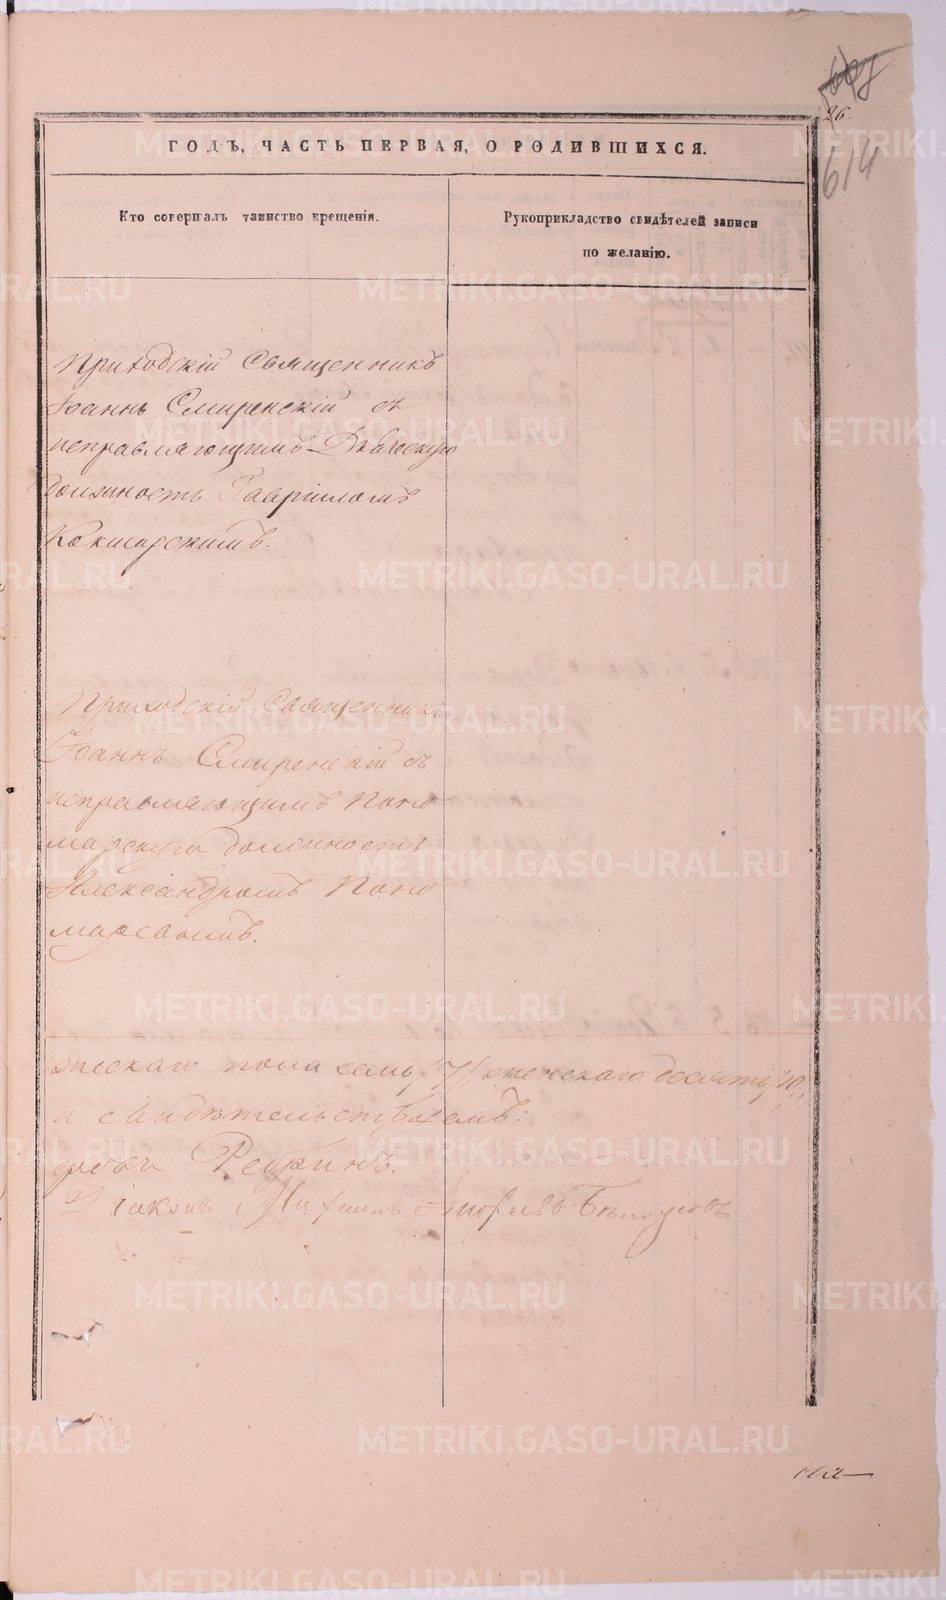 26.
614
ГОДЪ, ЧАСТЬ ПЕРВАЯ, О РОДИВШИХСЯ.
Кто совершалъ таинство крещенія.
Рукоприкладство свидѣтелей записи
по желанію.
Приходскій Священникъ
Іоаннъ Смиренскій съ
исправляющимъ Дьяческую
должность Гавріиломъ
Кокшарскимъ.
Приходскій Священникъ
Іоаннъ Смиренскій съ
исправляющимъ Поно
марскую должность
Александромъ Поно
маревымъ.
жескаго пола семь /7/, женскаго десять /10/,
и свидѣтельствуемъ:
Ребринъ.
Діаконъ Михаилъ Бѣлоусовъ
METRIKI.GASO-URAL.RU